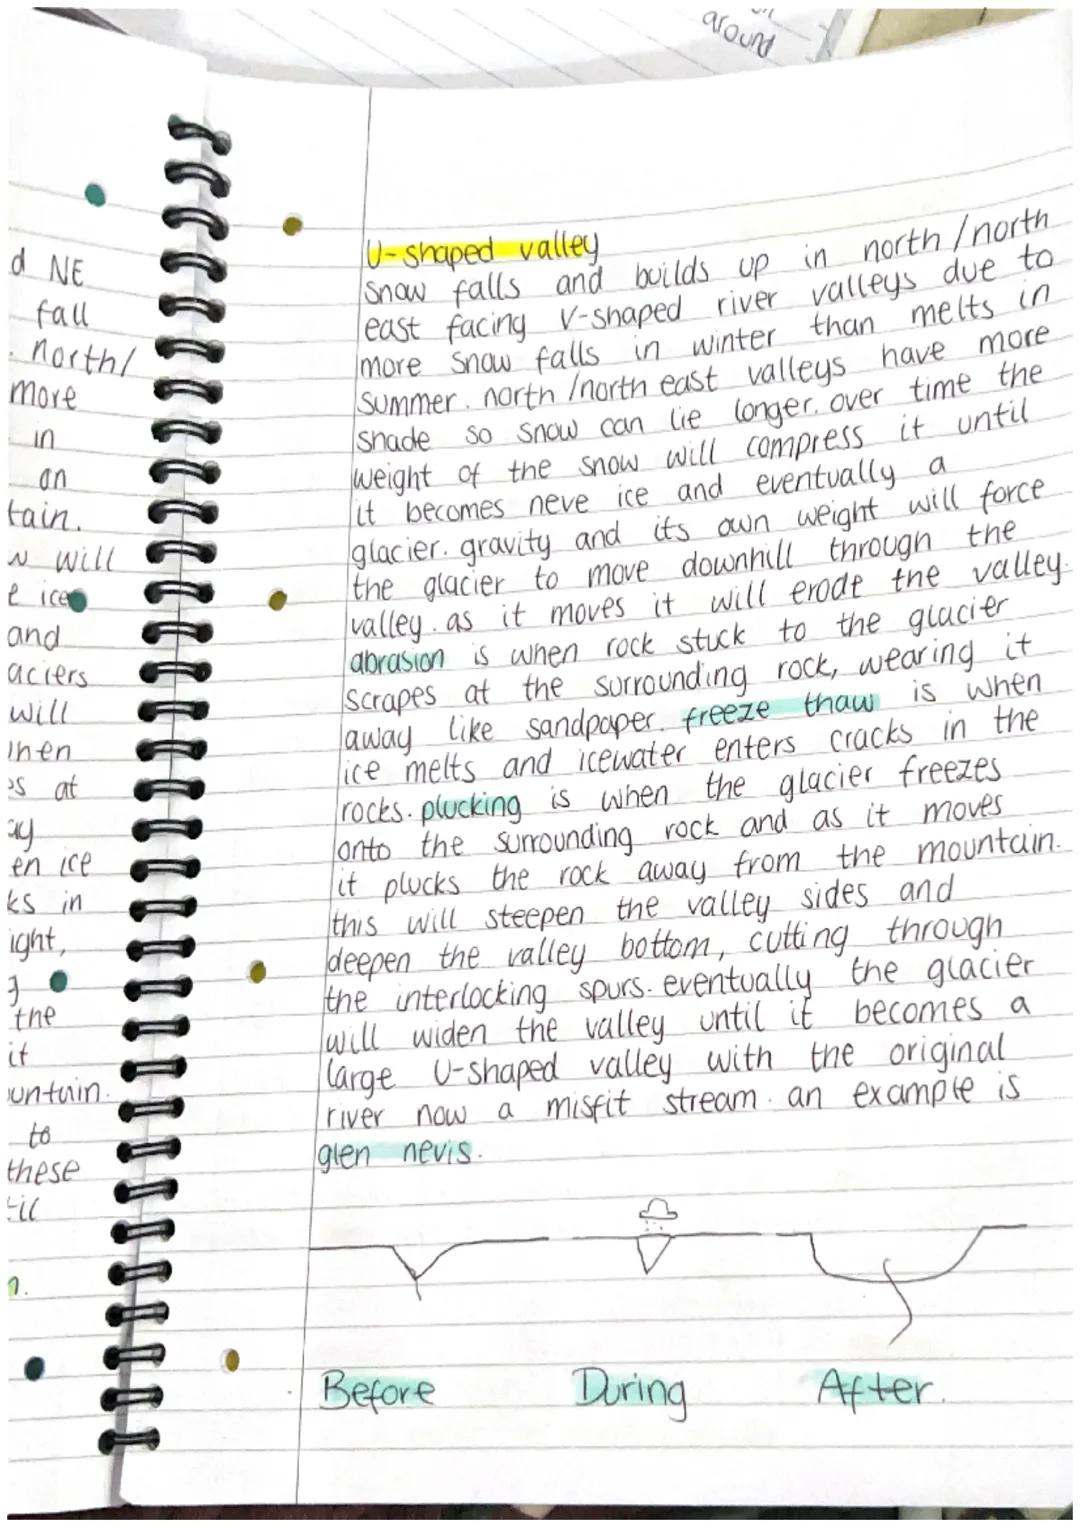 around
d NE
fall
north/
more
in
an
tain.
w will
e ice
and
aciers
will
hen
es at
ay
en ice
ks in
ight,
g
the
it
untain.
to
these
til
n.
U-shaped valley
snow falls and builds up in north/north
east facing V-shaped river valleys due to
more snow falls in winter than melts in
summer. north/north east valleys have more
shade so snow can lie longer. over time the
weight of the snow will compress it until
it becomes neve ice and eventually a
glacier. gravity and its own weight will force
the glacier to move downhill through the
valley. as it moves it will erode the valley.
abrasion is when rock stuck to the glacier
scrapes at the surrounding rock, wearing it
away like sandpaper. freeze thaw is when
ice melts and icewater enters cracks in the
rocks. plucking is when the glacier freezes
onto the surrounding rock and as it moves
it plucks the rock away from the mountain.
this will steepen the valley sides and
deepen the valley bottom, cutting through
the interlocking spurs. eventually the glacier
will widen the valley until it becomes a
large U-shaped valley with the original
river now a misfit stream. an example is
glen nevis.
Before During After.